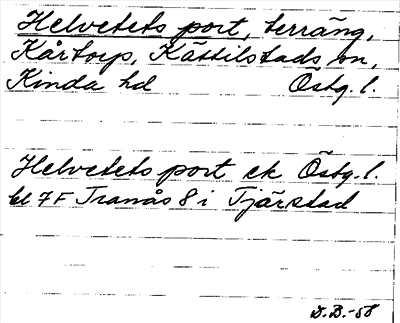 Helvetets port, terräng,
Kårtorp, Kättilstads sn,
Kinda hd Östg. l.
Helvetets port ek Östg. l.
bl 7F Tranås 8 i Tjärstad
D.B.-58